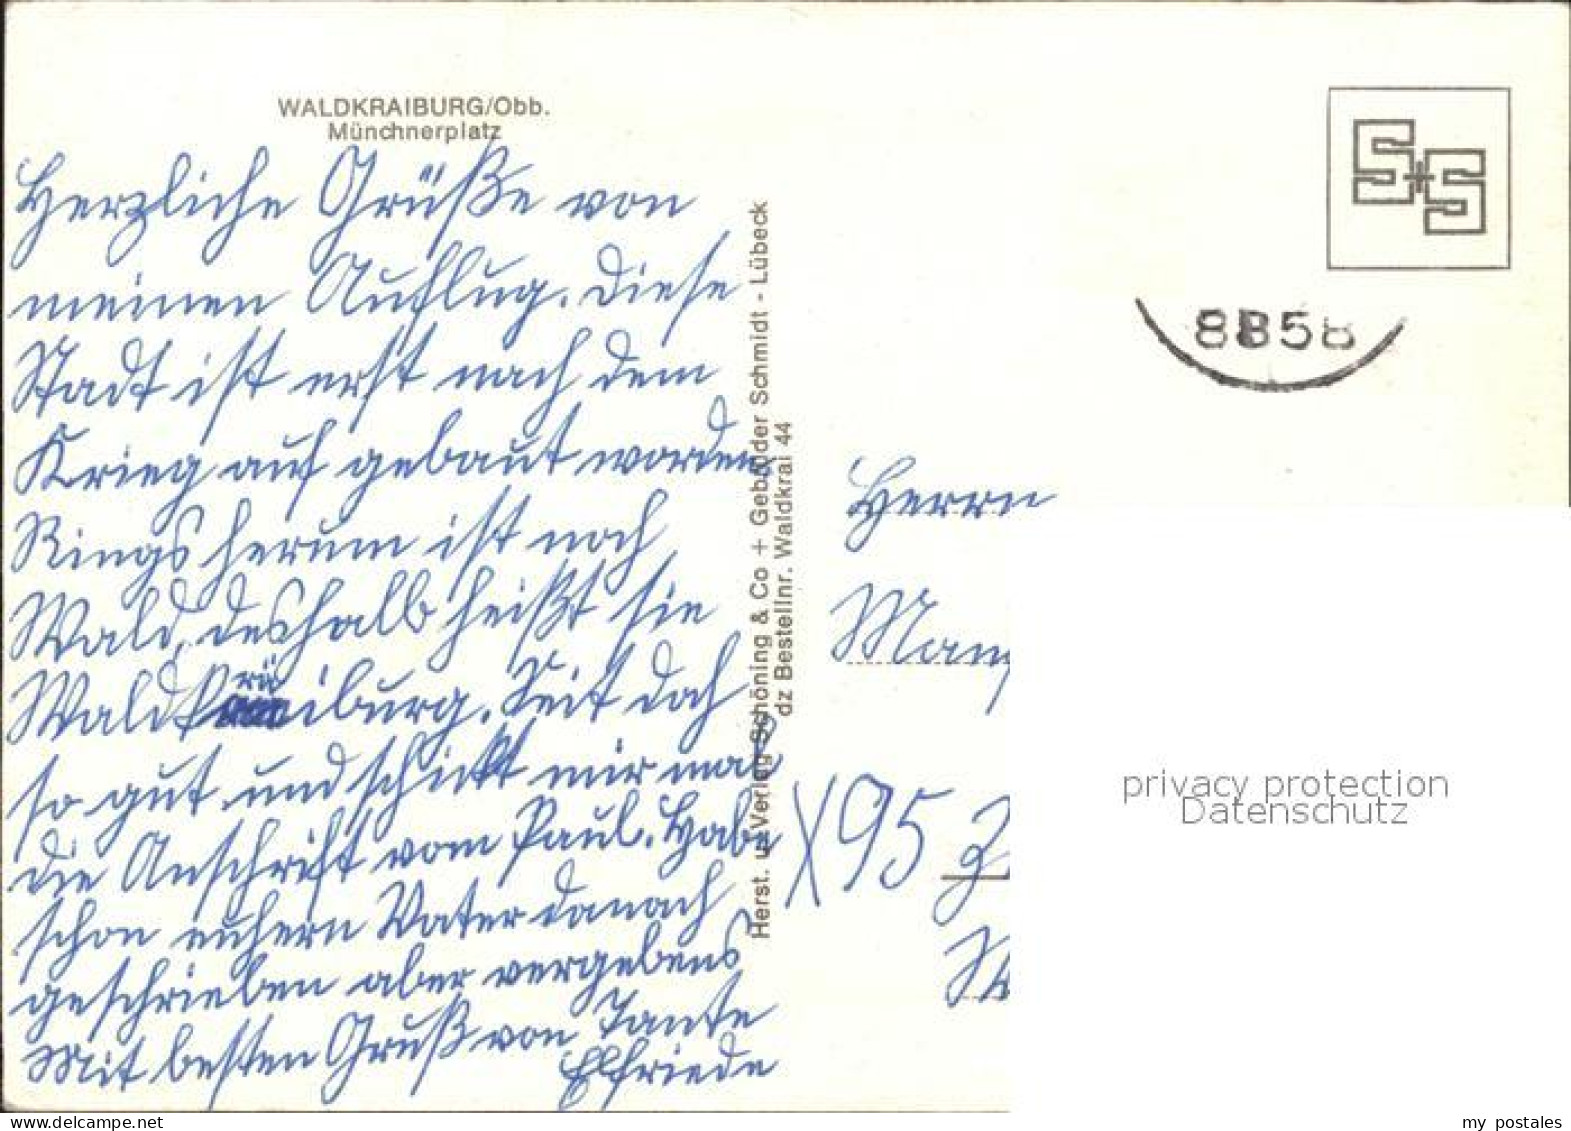 WALDKRAIBURG/Obb.
Münchnerplatz
Herzliche Grüße von
meinen Ausflug. Diese
Stadt ist erst nach dem
Krieg auf gebaut worden
Rings herum ist noch
Wald, deshalb heißt sie
Waldkraiburg. Seit doch
so gut und schickt mir mal
die Anschrift vom Paul. Habe
schon euhern Vater danach
geschrieben aber vergebens
Mit besten Gruß von Tante
Elfriede
Herst. u. Verlag Schöning & Co + Gebrüder Schmidt - Lübeck
dz Bestellnr. Waldkrai 44
S+S
8858
Herrn
X 95
privacy protection
Datenschutz
my_postales
www.delcampe.net